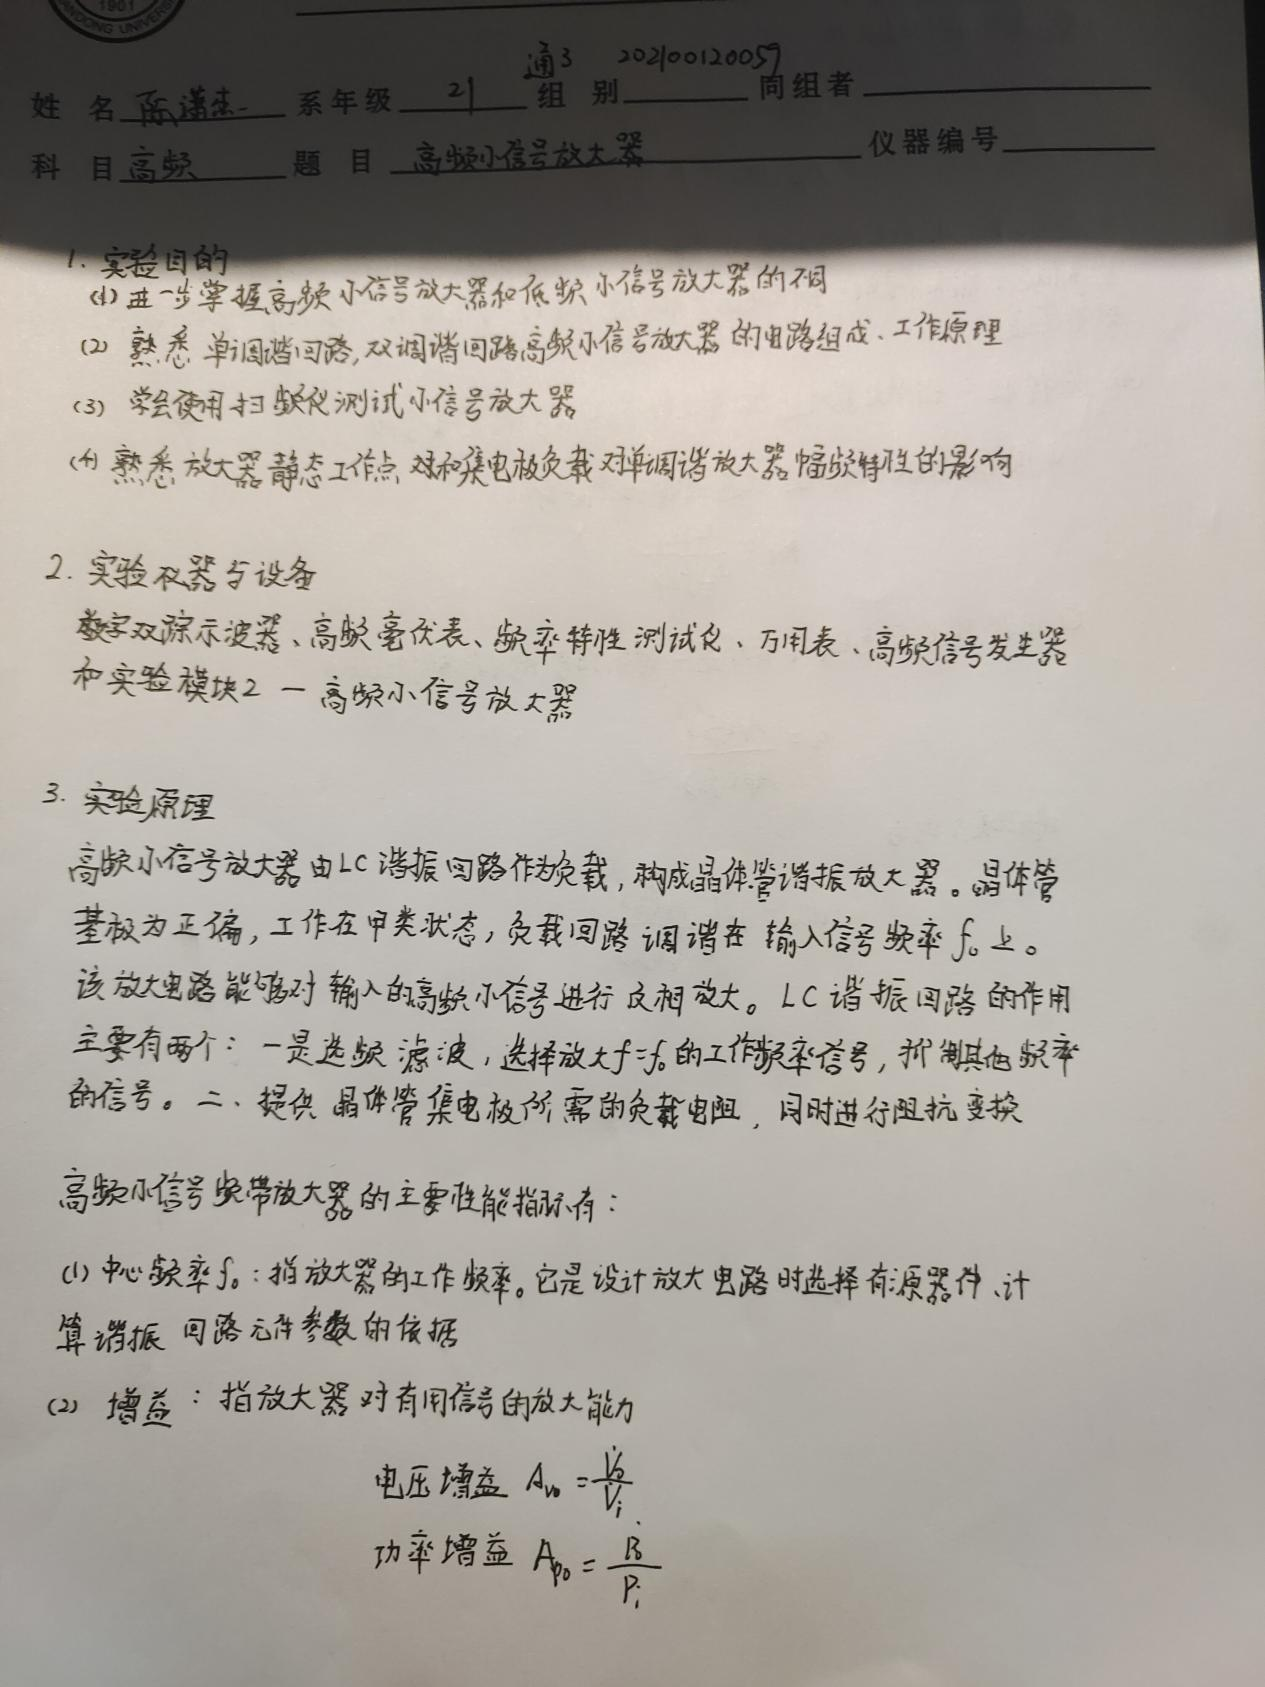 1901
SHANDONG UNIVERSITY
姓 名 陈潇杰 系年级 21 组 别 通3 202100120059 同组者
科 目 高频 题 目 高频小信号放大器 仪器编号
1. 实验目的
(1) 进一步掌握高频小信号放大器和低频小信号放大器的不同
(2) 熟悉单调谐回路,双调谐回路高频小信号放大器的电路组成、工作原理
(3) 学会使用扫频仪测试小信号放大器
(4) 熟悉放大器静态工作点和集电极负载对单调谐放大器幅频特性的影响
2. 实验仪器与设备
数字双踪示波器、高频毫伏表、频率特性测试仪、万用表、高频信号发生器
和实验模块2 — 高频小信号放大器
3. 实验原理
高频小信号放大器由LC谐振回路作为负载,构成晶体管谐振放大器。晶体管
基极为正偏,工作在甲类状态,负载回路调谐在输入信号频率f₀上。
该放大电路能够对输入的高频小信号进行反相放大。LC谐振回路的作用
主要有两个:一是选频滤波,选择放大f=f₀的工作频率信号,抑制其他频率
的信号。二、提供晶体管集电极所需的负载电阻,同时进行阻抗变换
高频小信号频带放大器的主要性能指标有:
(1) 中心频率f₀:指放大器的工作频率。它是设计放大电路时选择有源器件、计
算谐振回路元件参数的依据
(2) 增益:指放大器对有用信号的放大能力
电压增益 Av₀ = V̇₀/V̇i
功率增益 Ap₀ = P₀/Pi